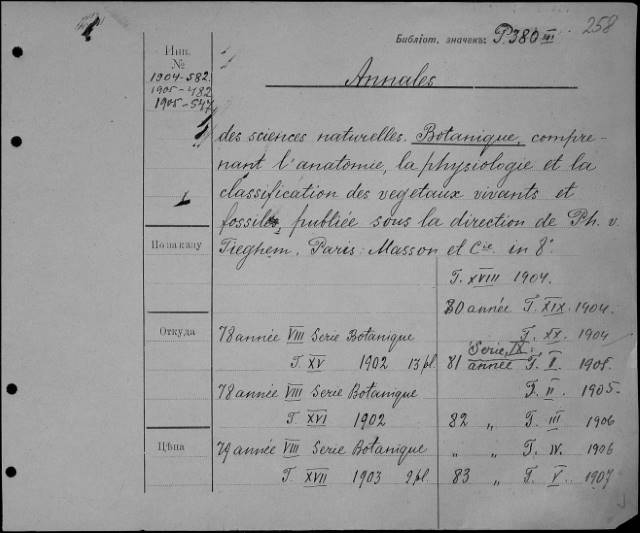 258
Библіот. значекъ: P380 III
Инв.
№
1904-582.
1905-482
1905-547
Annales
des sciences naturelles. Botanique, compre-
nant l'anatomie, la physiologie et la
classification des vegetaux vivants et
fossiles, publiée sous la direction de Ph. v.
Tieghem. Paris: Masson et Cie. in 8°
По заказу
Откуда
Цѣна
78 année VIII Serie Botanique
T. XV 1902 13 pl.
78 année VIII Serie Botanique
T. XVI 1902
79 année VIII Serie Botanique
T. XVII 1903 2 pl.
T. XVIII 1904.
80 année T. XIX. 1904.
T. XX. 1904
Serie IX:
81 année T. I. 1905.
T. II. 1905.
82 „ T. III 1906
„ „ T. IV. 1906
83 „ T. V. 1907